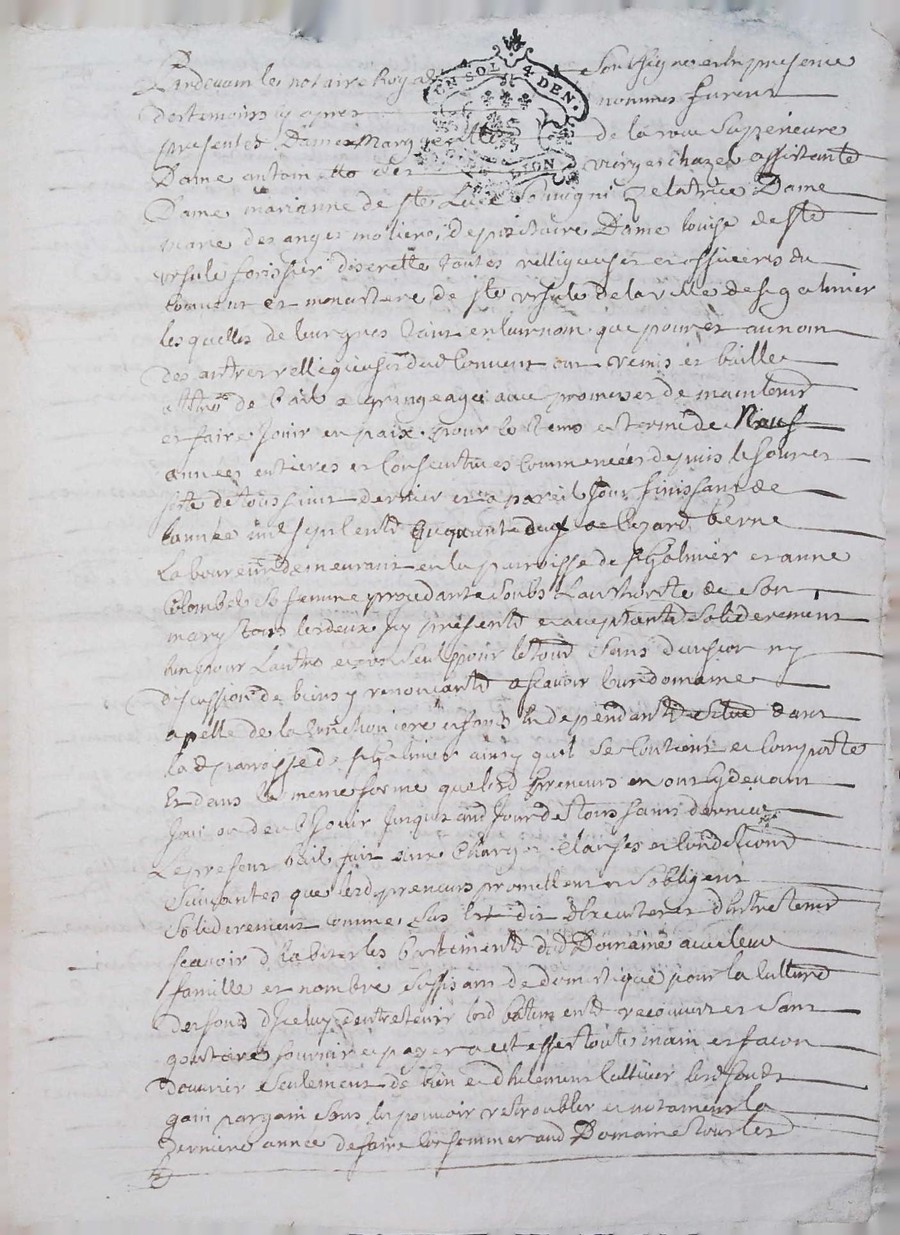 Pardevant les notaire Royal Soubsigné et en presence
des temoins cy apres nommes furent
presentes Dame Margueritte de la roue Superieure
UN SOL 4 DEN.
LION
Dame antoinette verger chazel assistante
Dame marianne de ste Zelatrice Dame
marie des anges moliere, depositaire Dame louise de ste
ursule forissier discrette toutes relligieuses et officieres du
Convent et monastere de ste ursule de la ville de st galmier
lesquelles de leur gres tant en leur nom que pour et au nom
des autres relligieuses dud Convent ont remis et baille
a tittre de bail a grangeage avec promesses de maintenir
et faire Jouir en paix pour le tems et terme de Neuf
années entieres et Consecutives Commencées depuis le Jour et
feste de toussaint dernier et a pareil Jour finissant de
l'année mil sept cent Cinquante deux a berne
Laboureur demeurant en la parroisse de st Galmier et anne
Colombet sa femme procedante soubs L'authorité de son
mary tous les deux Icy presents et acceptants solidairement
l'un pour L'autre et un seul pour le tout sans division ny
discussion de biens y renonçants a scavoir leur domaine
apellé de la et fonds en dependants situé dans
la d parroisse de st Galmier ainsy quil se Contient et Comporte
Et dans la meme forme que lesd preneurs en ont cy devant
Joui ou deub Jouir Jusques aud Jour de toussaint dernier
Le present bail fait aux Charges Clauses et Conditions
Suivantes que lesd preneurs promettent et s'obligent
Solidairement comme sus Est dit d'Executer et d'Entretenir
scavoir d'habiter les bastiments dud Domaine avec leur
famille et nombre suffisant de domestique pour la Culture
des fonds d'Iceluy d'entretenir lesd batiments recouverts et sans
goutieres fournir et payer a cet effet toutes main et façon
d'ouvrier seulement de bien et dhuement Cultiver lesd fonds
gain par gain sans les pouvoir retroubler et notament la
derniere année de faire Consommer aud Domaine tous les